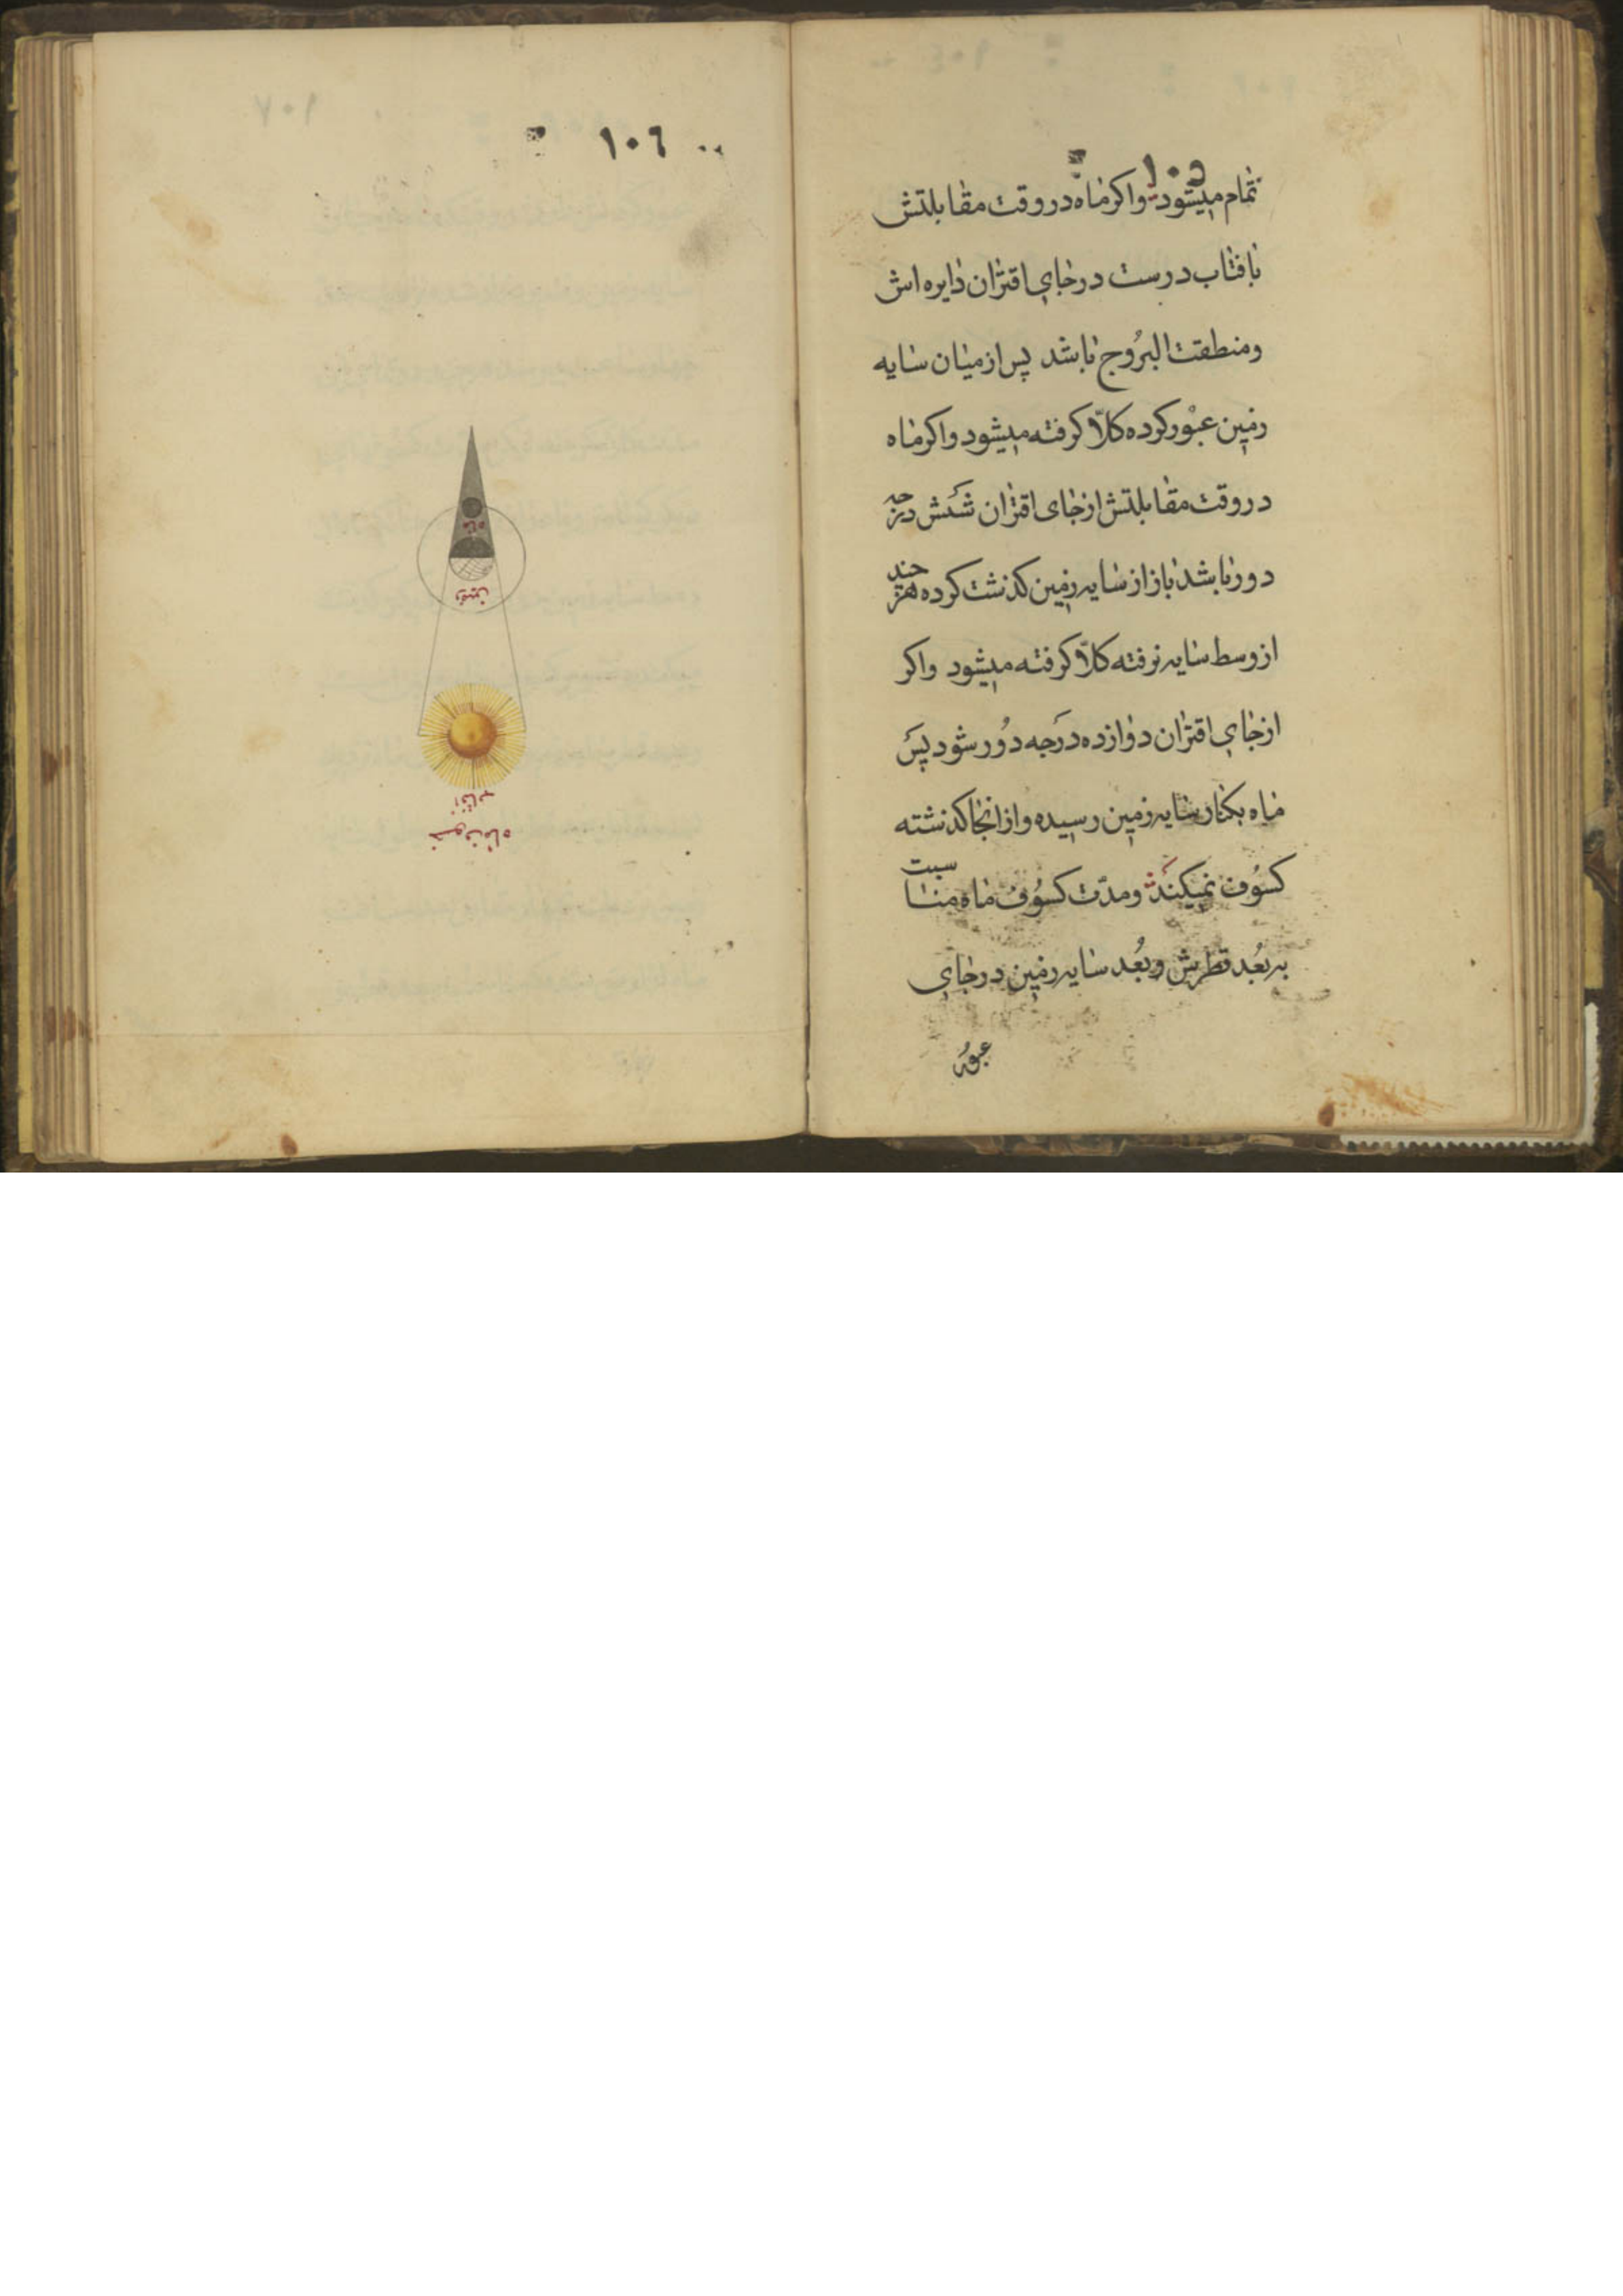 ١٠٥
تمام میشود واکر ماه در وقت مقابلتش
بافتاب درست در جای اقتران دایره اش
ومنطقت البرُوج باشد پس از میان سایه
زمین عبوُر کرده کلّا کرفته میشود واکر ماه
در وقت مقابلتش از جای اقتران شَش درجه
دور باشد باز از سایه زمین کذشت کرده هرچند
از وسط سایه نرفته کلّا کرفته میشود واکر
از جای اقتران دوازده دَرجه دُور شود پسَ
ماه بکنار سایه زمین رسیده واز انجا کذشته
کسوُف نمیکندَ ومدّت کسوُف ماه مناسبت
به بُعد قطرش وبُعد سایه زمین در جای
عبوُر
١٠٦
ماه
زمین
آفتاب
خسوف ماه